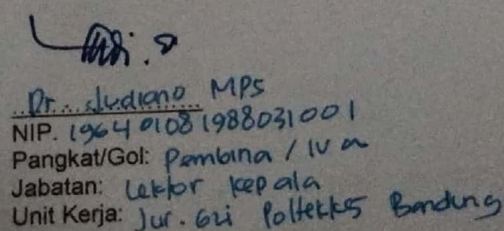 Dr. Judiono MPS
NIP. 196401081988031001
Pangkat/Gol: Pembina / IV a
Jabatan: Lektor kepala
Unit Kerja: Jur. Gzi Poltekkes Bandung